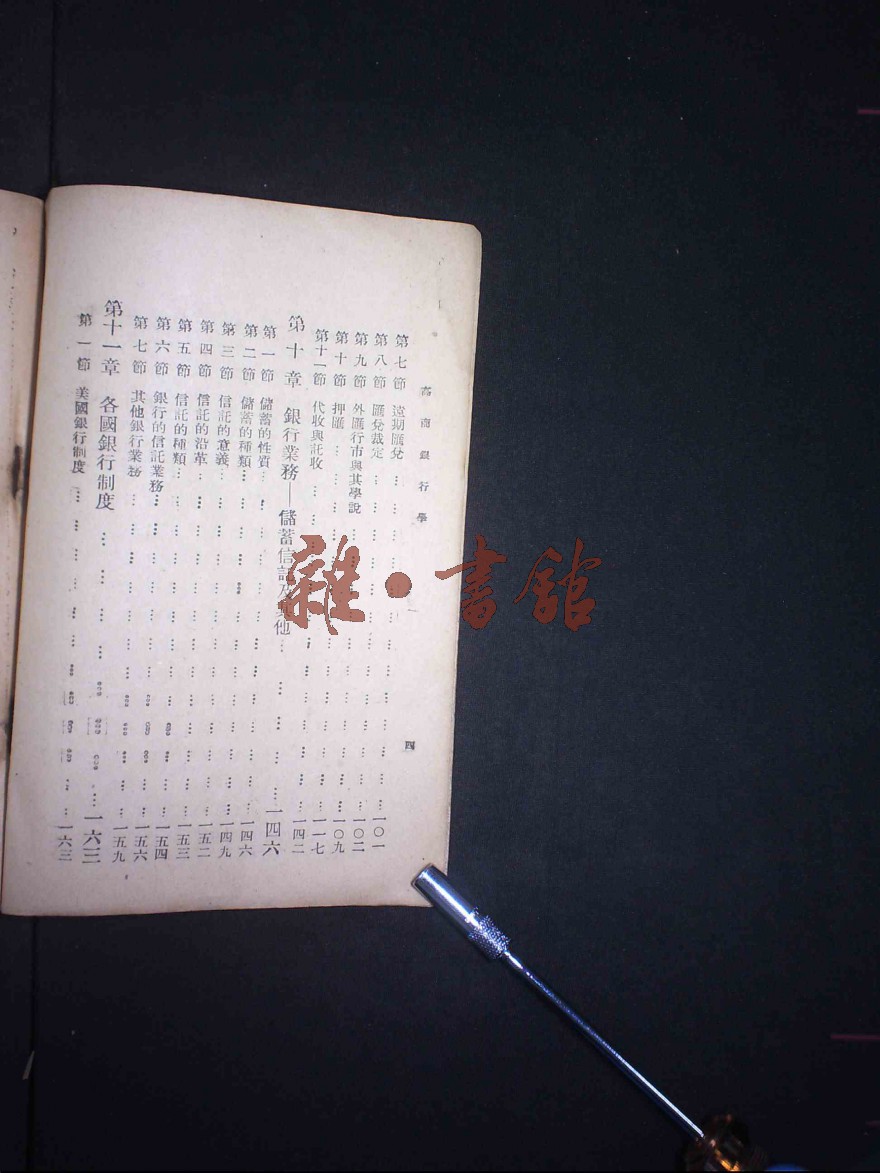 高商銀行學 四
第七節 遠期匯兌………………一〇一
第八節 匯兌裁定………………一〇二
第九節 外匯行市與其學說………………一〇九
第十節 押匯………………一一七
第十一節 代收與託收………………一四二
第十章 銀行業務—儲蓄信託及其他………………一四六
第一節 儲蓄的性質………………一四六
第二節 儲蓄的種類………………一四九
第三節 信託的意義………………一五二
第四節 信託的沿革………………一五三
第五節 信託的種類………………一五四
第六節 銀行的信託業務………………一五六
第七節 其他銀行業務………………一五九
第十一章 各國銀行制度………………一六三
第一節 美國銀行制度………………一六三
雜·書館